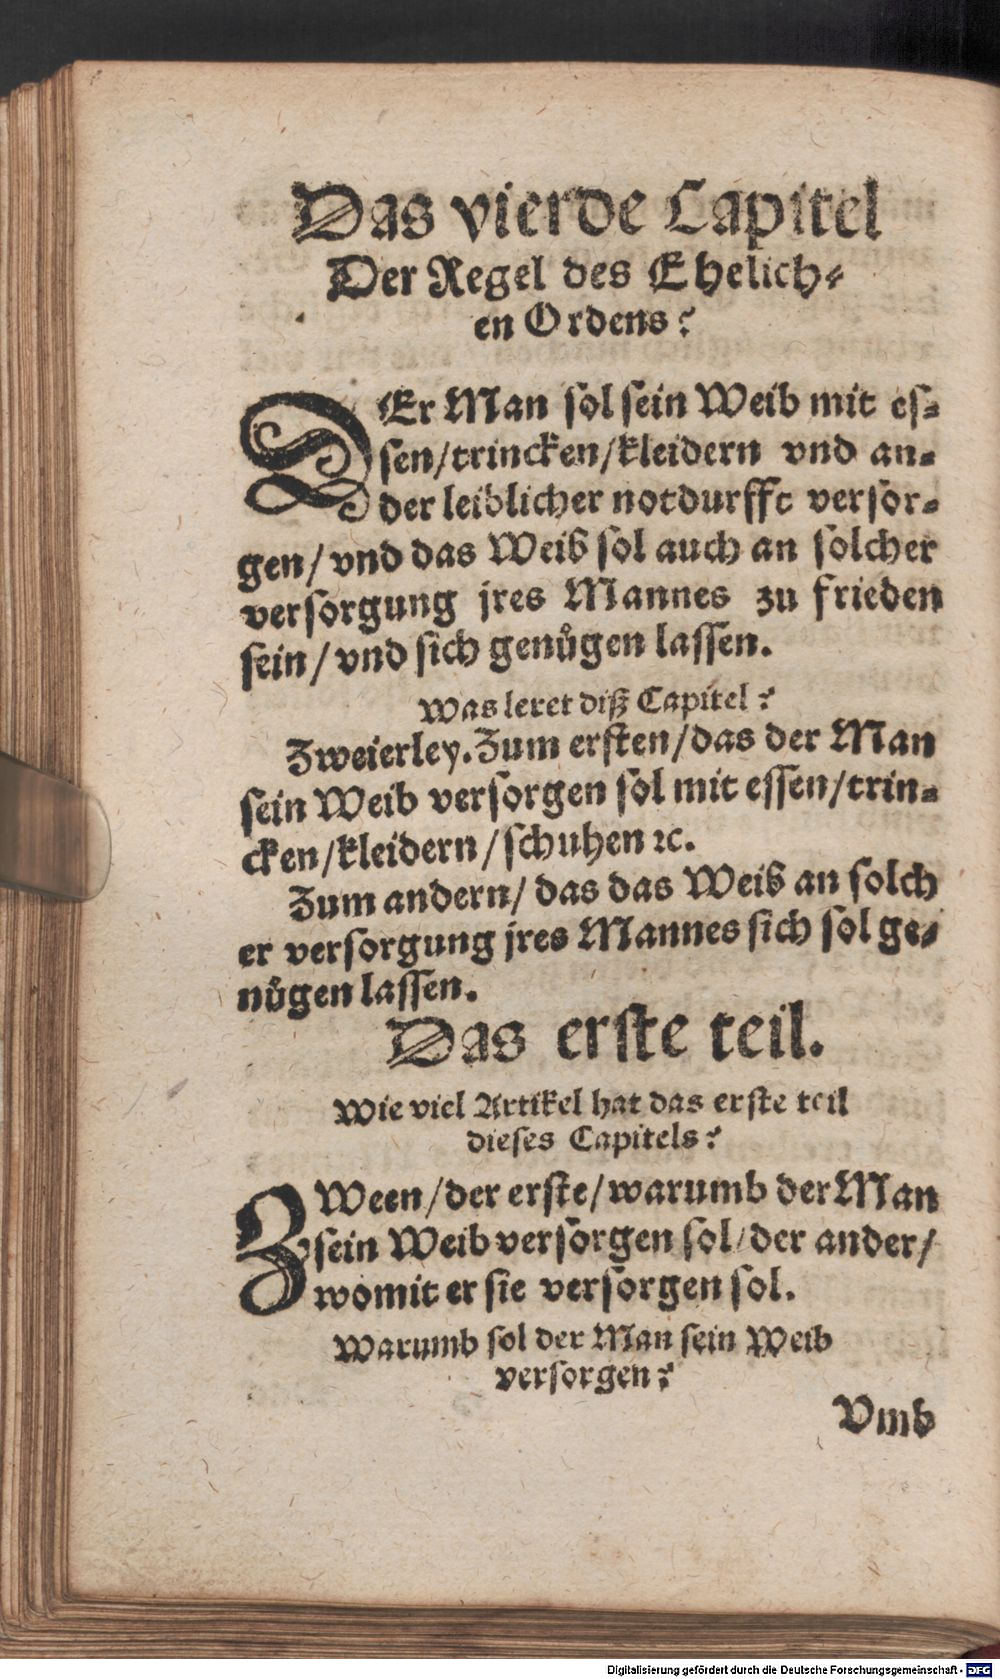 Das vierde Capitel
Der Regel des Ehelich⸗
en Ordens?
DEr Man sol sein Weib mit es⸗
sen/trincken/kleidern vnd an⸗
der leiblicher notdurfft versor⸗
gen/vnd das Weib sol auch an solcher
versorgung jres Mannes zu frieden
sein/vnd sich genuͤgen lassen.
Was leret diß Capitel?
Zweierley. Zum ersten/das der Man
sein Weib versorgen sol mit essen/trin⸗
cken/kleidern/schuhen ꝛc.
Zum andern/das das Weib an solch
er versorgung jres Mannes sich sol ge⸗
nuͤgen lassen.
Das erste teil.
Wie viel Artikel hat das erste teil
dieses Capitels?
ZWeen/der erste/warumb der Man
sein Weib versorgen sol/der ander/
womit er sie versorgen sol.
Warumb sol der Man sein Weib
versorgen?
Vmb
Digitalisierung gefördert durch die Deutsche Forschungsgemeinschaft - DFG